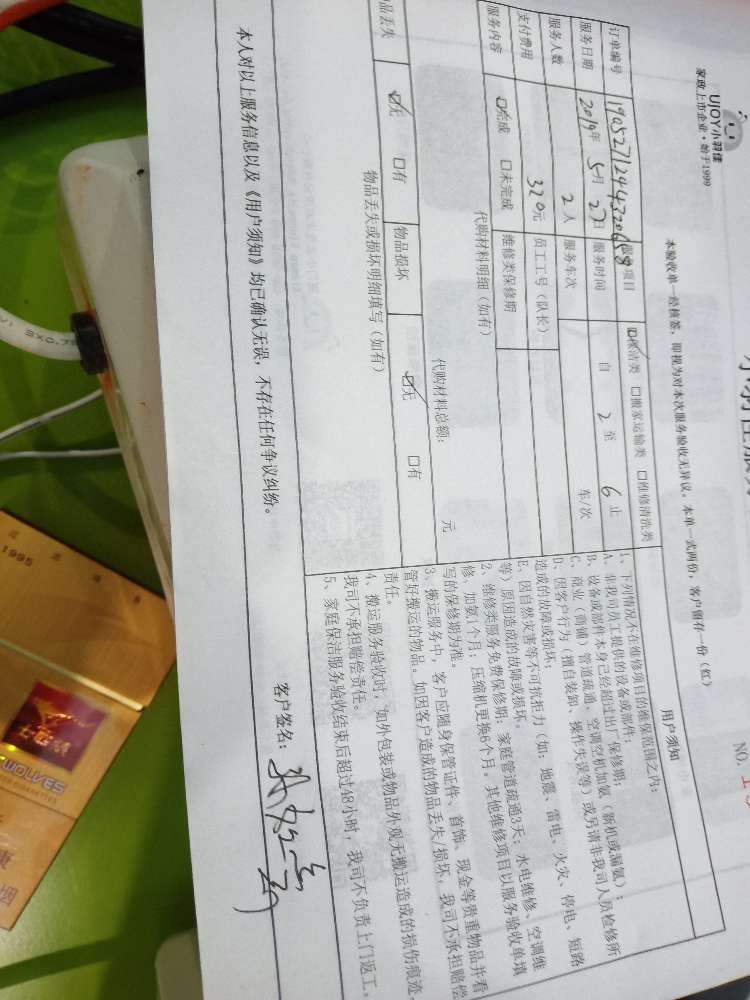 UJOY小羽佳
家政上市企业·始于1999
NO.
本验收单一经核签，即视为对本次服务验收无异议。本单一式两份，客户留存一份（红）
订单编号 服务项目 保洁类 □搬家运输类 □维修清洗类
服务日期 2019年 5月 27日 服务时间 自 2 至 6 止
服务人数 2人 服务车次 车/次
支付费用 320元 员工工号（队长）
服务内容 ☑完成 □未完成 维修类保修期
代购材料明细（如有）
代购材料总额： 元
物品丢失 ☑无 □有 物品损坏 ☑无 □有
物品丢失或损坏明细填写（如有）
用户须知
1、下列情况不在维修项目的维保范围之内：
A、非我司员工提供的设备或部件；
B、设备或部件本身已经超过出厂保修期；
C、商业（商铺）管道疏通、空调空机加氨（新机或漏氨）；
D、因客户行为（擅自装卸、操作失误等）或另请非我司人员检修所
造成的故障或损坏；
E、因自然灾害等不可抗拒力（如：地震、雷电、火灾、停电、短路
等）原因造成的故障或损坏。
2、维修类服务免费保修期：家庭管道疏通3天；水电维修、空调维
修、加氨1个月；压缩机更换6个月。其他维修项目以服务验收单填
写的保修期为准。
3、搬运服务中，客户应随身保管证件、首饰、现金等贵重物品并看
管好搬运的物品。如因客户造成的物品丢失/损坏，我司不承担赔偿
责任。
4、搬运服务验收时，如外包装或物品外观无搬运造成的损伤痕迹，
我司不承担赔偿责任。
5、家庭保洁服务验收结束后超过48小时，我司不负责上门返工。
本人对以上服务信息以及《用户须知》均已确认无误，不存在任何争议纠纷。
客户签名：
1995
WOLVES